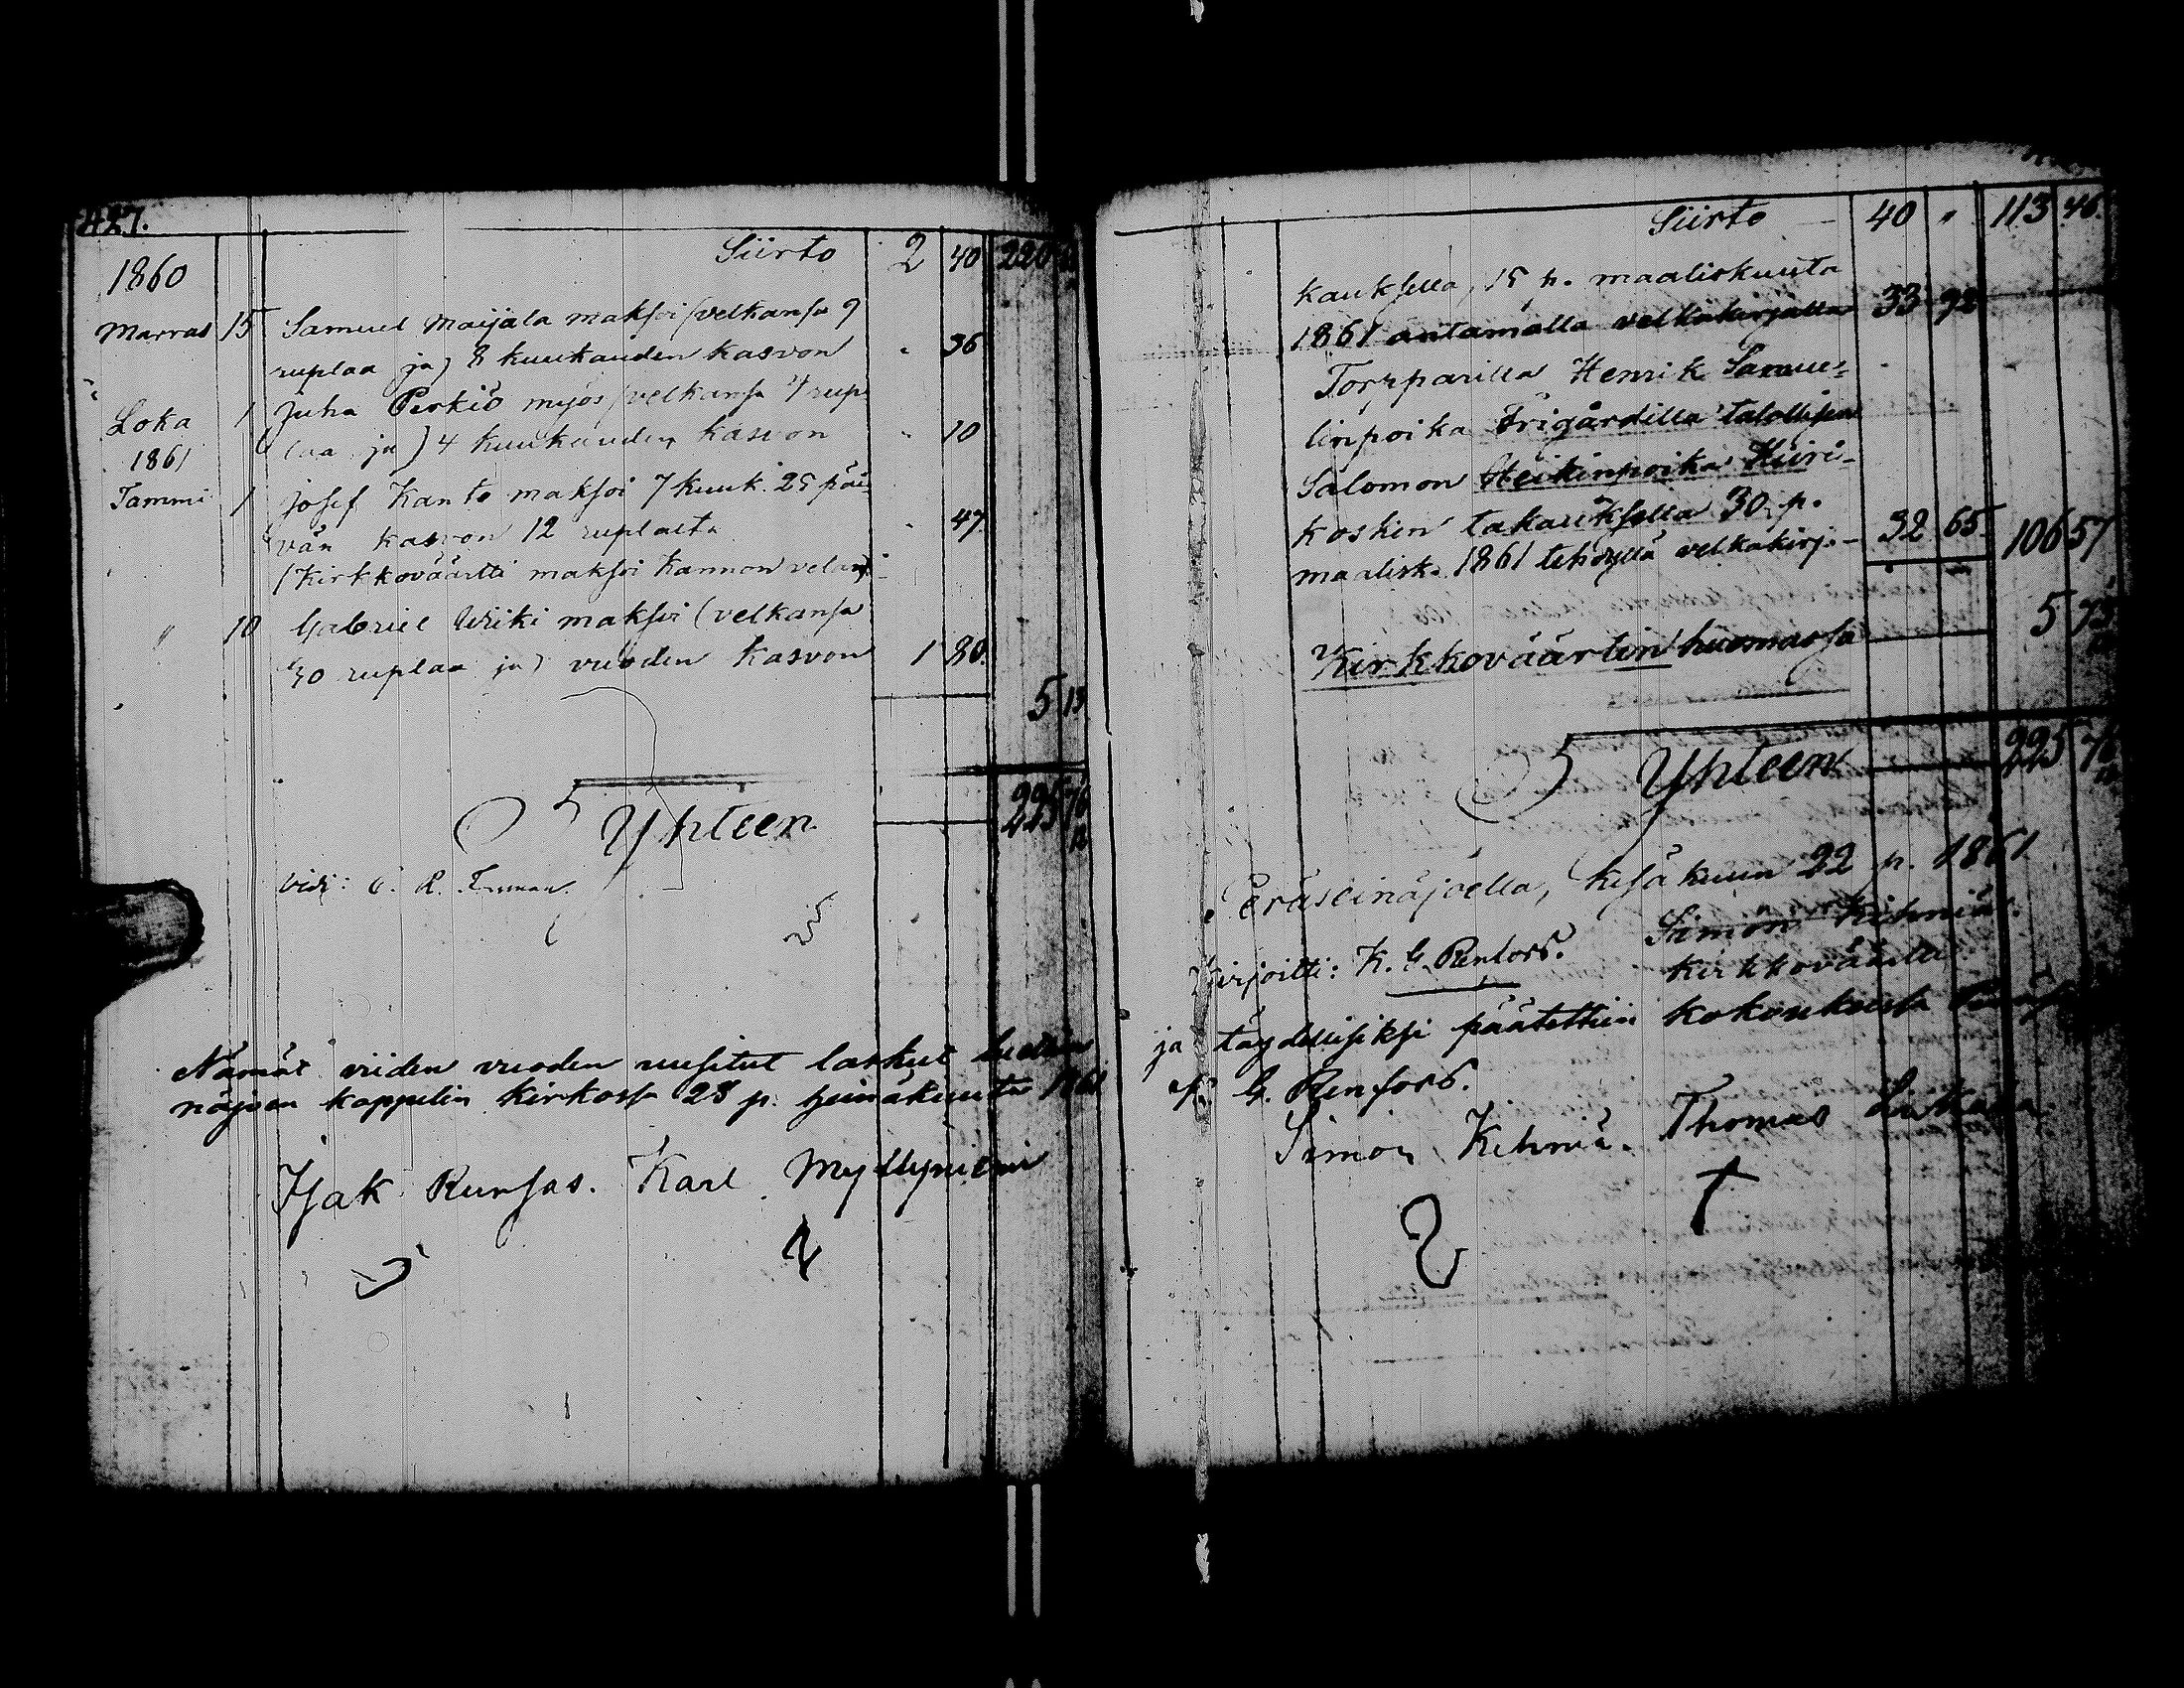 427.
Siirto 2 40 220
1860
Marras 15 Samuel Maijala maksoi (velkansa 9
ruplaa ja) 8 kuukauden kasvon " 36
Loka 1 Juha Perkiö myös (velkansa 4 rup-
1861 laa ja) 4 kuukauden kasvon " 10
Tammi 1 Josef Kanto maksoi 7 kuuk. 25 päi-
vän kasvon 12 ruplasta " 47.
(Kirkkoväärtti maksoi Kannon velan)
" 10 Gabriel Wiiki maksoi (velkansa
30 ruplaa ja) vuoden kasvon 1 80.
5 13
Yhteen 225 76
vidi: C. R.
Nämät viiden vuoden uusitut laskut
näjoen kappelin kirkossa 28 p. heinäkuuta 1861
Isak Runsas. Karl Myllyniemi
Siirto 40 " 113 46.
kauksella, 15 p. maaliskuuta
1861 antamalla velkakirjalla 33 92
Torpparilla Henrik Samue-
linpoika Frigårdilla talollisen
Salomon Heikinpoika Kiiri-
kosken takauksella 30 p.
maalisk. 1861 tehdyllä velkakirj. 32 65 106 57
Kirkkoväärtin huomassa 5 73
Yhteen 225 76
Peräseinäjoella, kesäkuun 22 p. 1861
Simon Kihniä.
Kirjoitti: K. G. Renfors. Kirkkoväärtti
ja täydellisiksi päätettiin kokouksessa
K. G. Renfors.
Simon Kihniä. Thomas